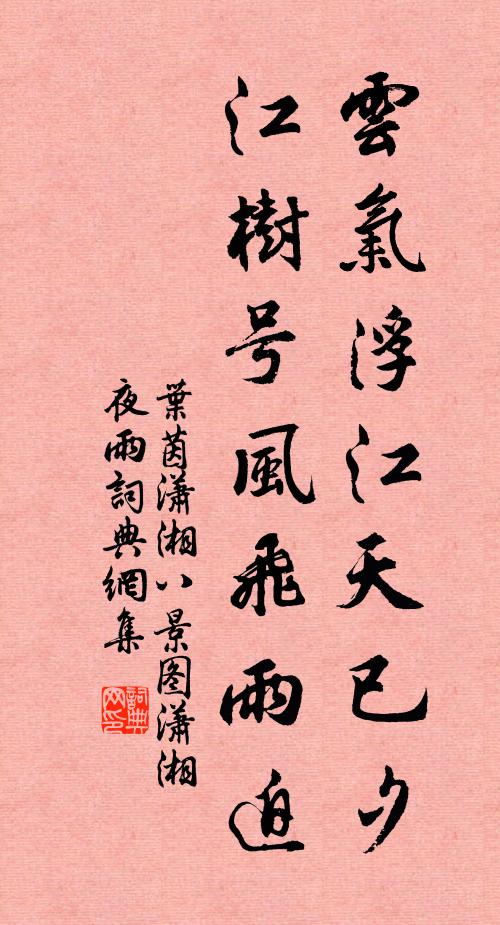 雲氣浮江天已夕
江樹号風飛雨迫
葉茵瀟湘八景图瀟湘
夜雨詞典網集
詞典网印